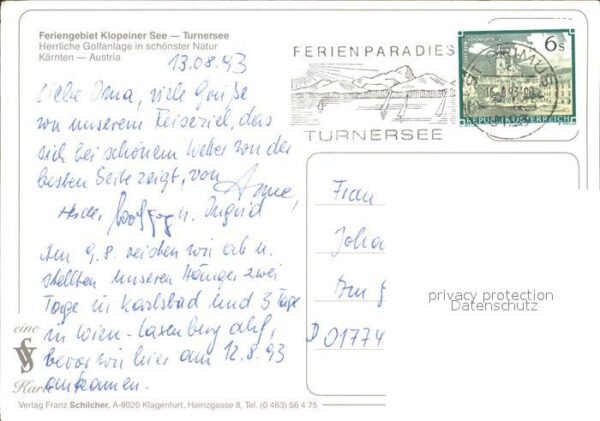 Feriengebiet Klopeiner See — Turnersee
Herrliche Golfanlage in schönster Natur
Kärnten — Austria
13.08.93
Liebe Oma, viele Grüße
von unserem Reiseziel, das
sich bei schönem Wetter von der
besten Seite zeigt, von Anne,
Heide, Wolfgang u. Ingrid
Am 9.8. reisten wir ab u.
stellten unseren Hänger zwei
Tage in Karlsbad und 3 Tage
in Wien-Laxenburg auf,
bevor wir hier am 12.8.93
ankamen.
eine
Karte
Verlag Franz Schilcher, A-9020 Klagenfurt, Heinzgasse 8, Tel. (0 463) 56 4 75
FERIENPARADIES
TURNERSEE
PRIMUS
6s
REPUBLIK ÖSTERREICH
Frau
Joha
Am
D 01774
privacy protection
Datenschutz